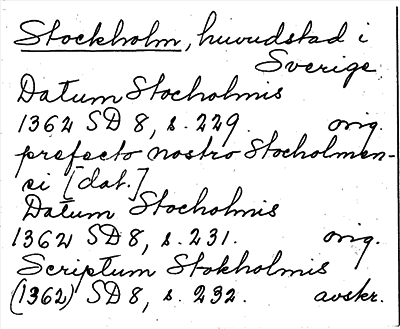 Stockholm, huvudstad i
Sverige
Datum Stocholmis
1362 SD 8, s. 229. orig.
prefecto nostro Stocholmen-
si [dat.]
Datum Stocholmis
1362 SD 8, s. 231. orig.
Scriptum Stokholmis
(1362) SD 8, s. 232. avskr.